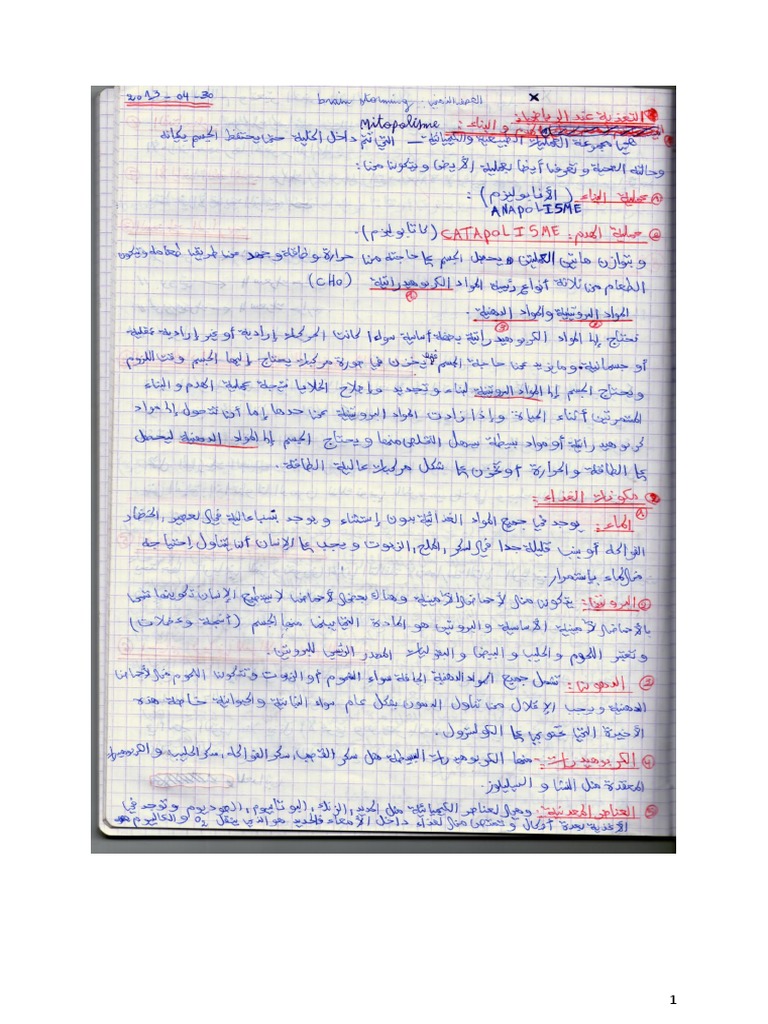 2013-04-30 brain storming العصف الذهني: x
التغذية عند الرياضيين
Mitopolisme الهدم و البناء:
هي مجموعة العمليات الطبيعية والكيميائية التي تتم داخل الخلية حتى يحتفظ الجسم بكيانه
وحالته الصحية و تعرف أيضا بعملية الأيض و يتكون من:
1 عملية البناء (الأنابوليزم):
ANAPOLISME
2 عملية الهدم: CATAPOLISME (كاتابوليزم).
و يتوازن هاتين العمليتين يحصل الجسم على حاجته من حرارة و طاقة و جهد عن طريق طعامه ويتكون
الطعام من ثلاثة أنواع رئيسية المواد الكربوهيدراتية (CHO)
1
المواد البروتينية والمواد الدهنية.
2 3
نحتاج إلى المواد الكربوهيدراتية بصفة أساسية سواء كانت الحركات إرادية أو غير إرادية عقلية
أو جسمانية وما يزيد عن حاجة الجسم فهو يخزن في صورة مركبات يحتاج إليها الجسم وقت اللزوم
و يحتاج الجسم إلى المواد البروتينية لبناء و تجديد وإصلاح الخلايا نتيجة عملية الهدم و البناء
المستمرتين أثناء الحياة وإذا زادت المواد البروتينية عن حدها إما أن تتحول إلى مواد
كربوهيدراتية أو مواد بسيطة يسهل التخلص منها و يحتاج الجسم إلى المواد الدهنية ليحصل
على الطاقة و الحرارة أو تخزن على شكل مركبات عالية الطاقة.
2 مكونات الغذاء:
1 الماء: يوجد في جميع المواد الغذائية بدون إستثناء و يوجد بنسب عالية في العصير, الخضار
الفواكه أو بنسب قليلة جدا في السكر, الملح, الزيوت و يجب على الإنسان أن يتناول إحتياجه
من الماء بإستمرار
2 البروتين: يتكون من الأحماض الأمينية وهناك بعض الأحماض لا يستطيع الإنسان تكوينها تسمى
بالأحماض الأمينية الأساسية و البروتين هو المادة التي يبنى منها الجسم (أنسجة وعضلات)
و تعتبر اللحوم و الحليب و البيض و البقوليات المصدر الرئيسي للبروتين.
3 الدهون: تشمل جميع المواد الدهنية الجافة سواء الشحوم أو الزيوت و تتكون اللحوم من الأحماض
الدهنية ويجب الإقلال من تناول الدسون بشكل عام سواء النباتية و الحيوانية خاصة هذه
الأخيرة التي تحتوي على الكولسترول.
4 الكربوهيدرات: منها الكربوهيدرات البسيطة مثل سكر القصب, سكر الفواكه, سكر الحليب و الكربوهيدرات
المعقدة مثل النشا و السيليلوز.
5 العناصر المعدنية: وهي العناصر الكيميائية مثل الحديد, الزنك, البوتاسيوم, الصوديوم وتوجد في
الأغذية بعدة أشكال و تمتص من الغذاء داخل الأمعاء فالحديد هو الذي ينقل O2 و الكالسيوم هو
1